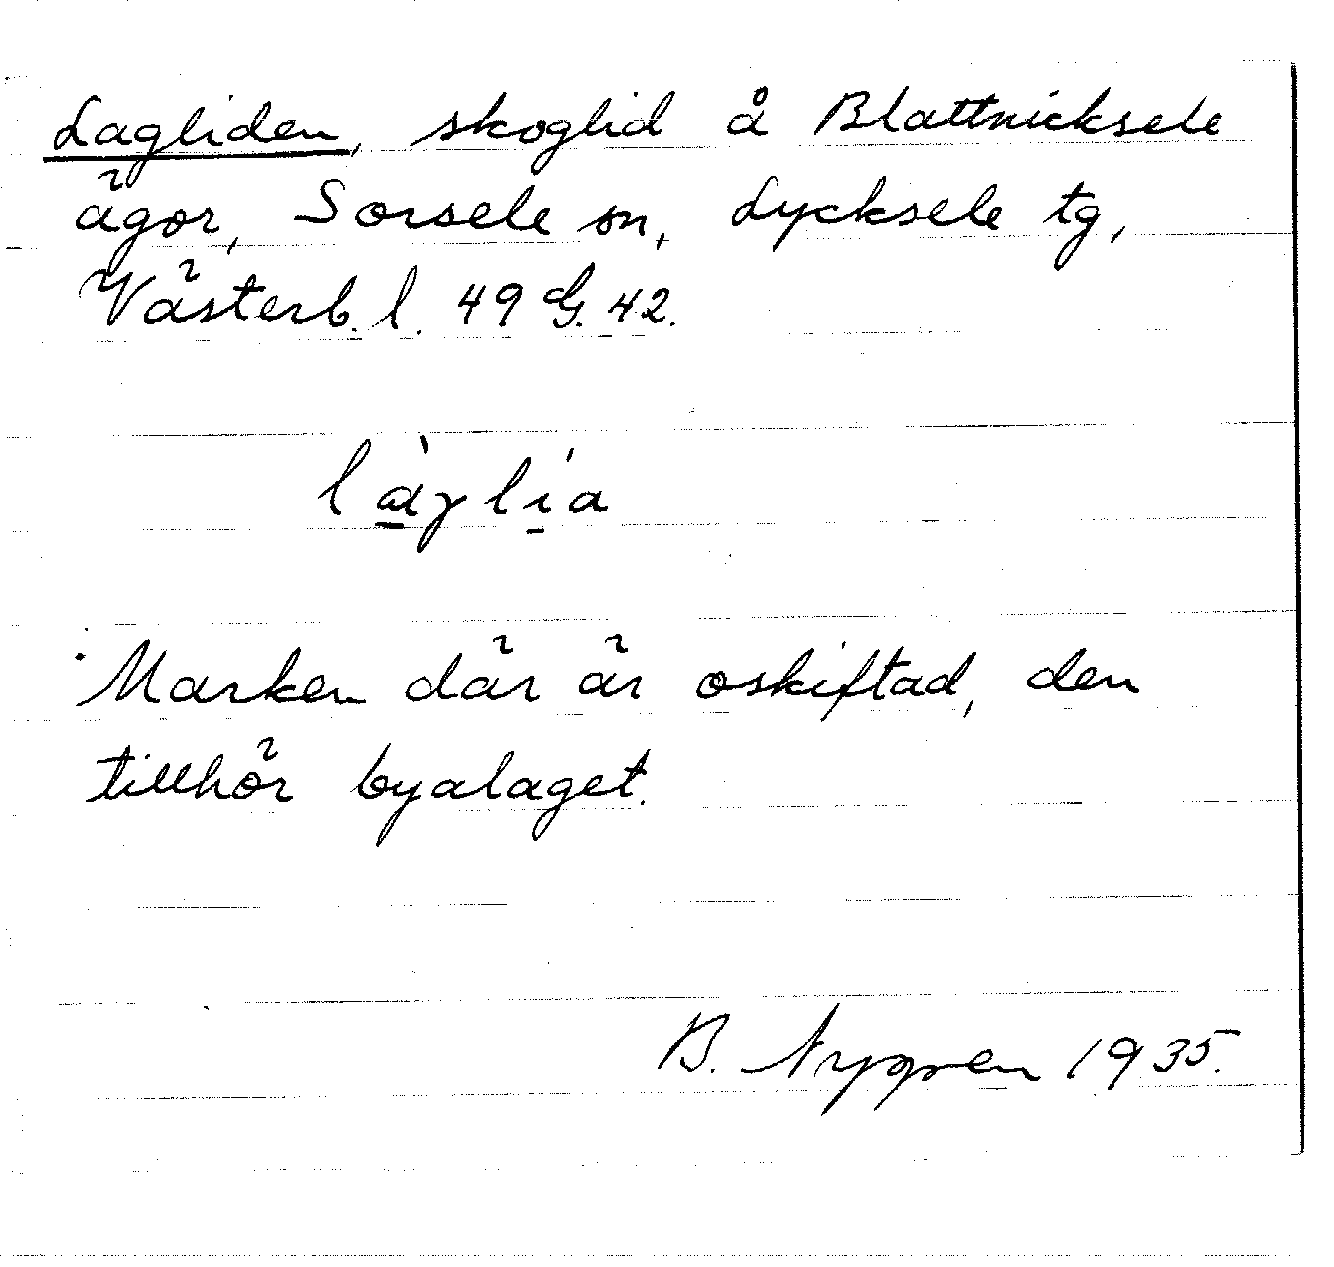 Lagliden, skoglid å Blattnicksele
ägor, Sorsele sn, Lycksele tg,
Västerb. l. 49 G. 42.
Marken där är oskiftad, den
tillhör byalaget.
B. Nygren 1935.